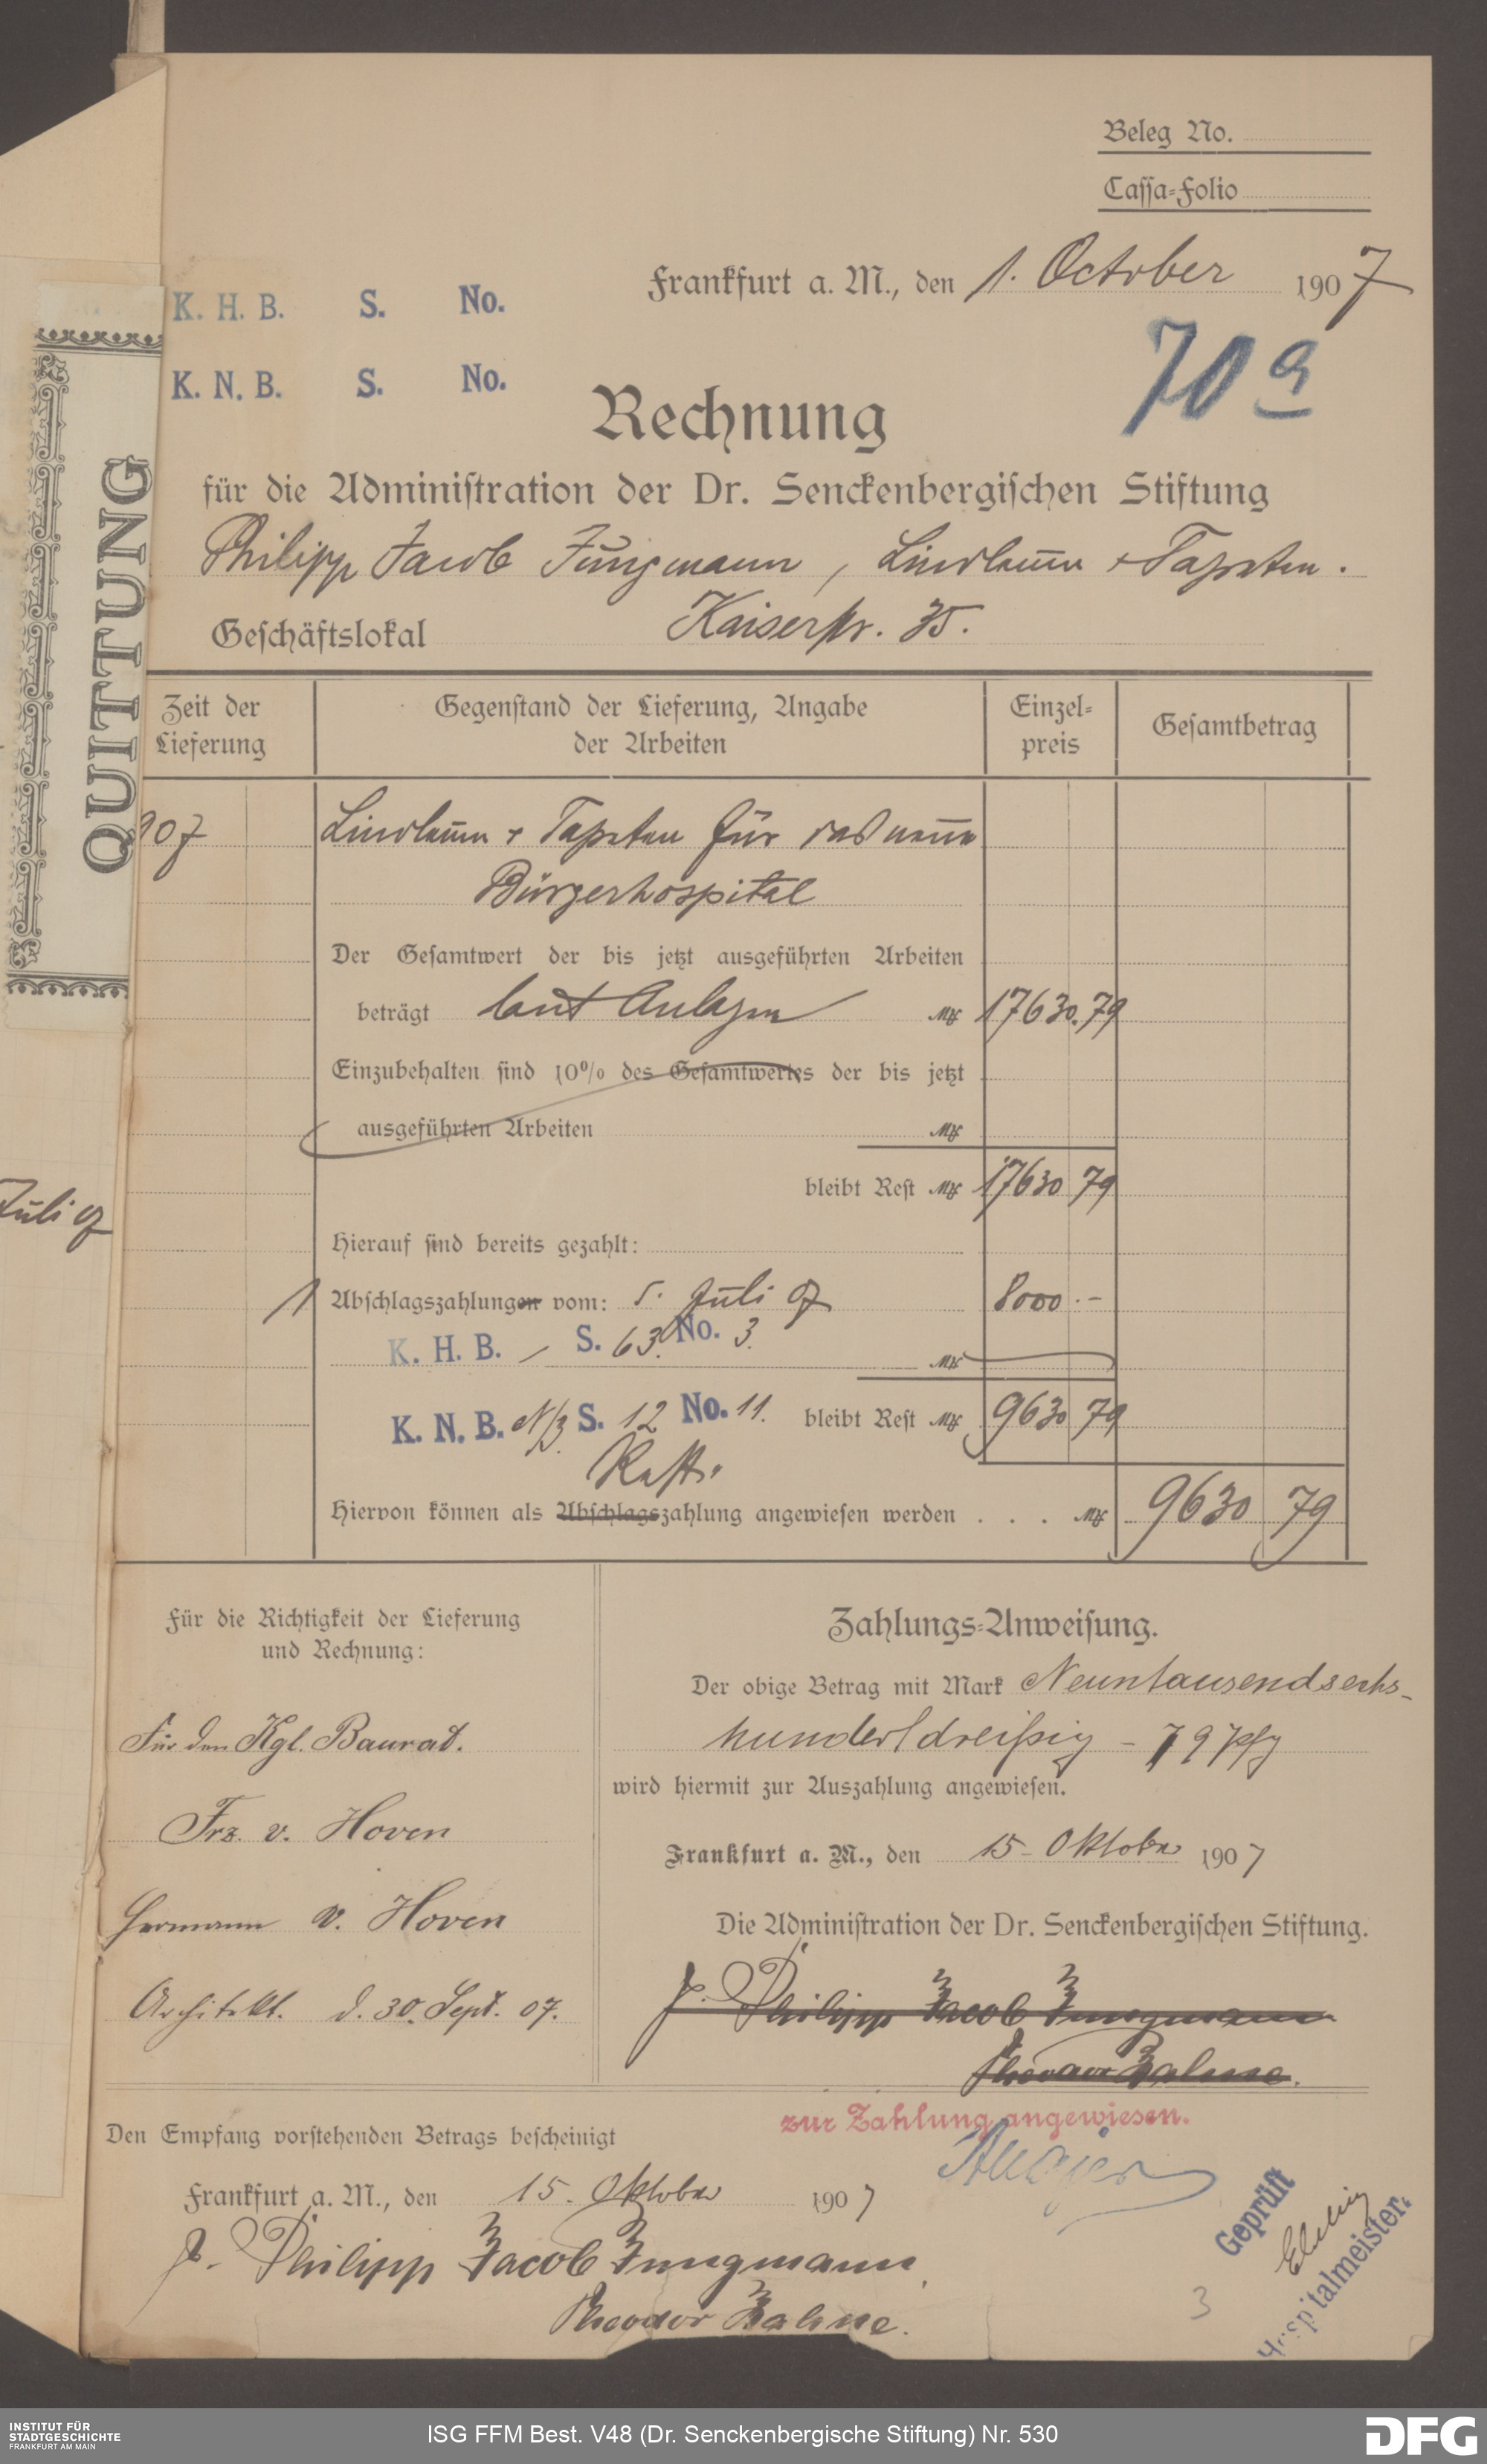 Beleg No.
Cassa-Folio
Frankfurt a. M., den 1. October 1907
K. H. B. S. No.
70 a
K. N. B. S. No.
Rechnung
für die Administration der Dr. Senckenbergischen Stiftung
Philipp Jacob Jungmann, Linoleum + Tapeten.
Geschäftslokal Kaiserstr. 35.
QUITTUNG
Zeit der Lieferung
Gegenstand der Lieferung, Angabe der Arbeiten
Einzelpreis
Gesamtbetrag
907 Linoleum + Tapeten für das neue
Bürgerhospital
Der Gesamtwert der bis jetzt ausgeführten Arbeiten
beträgt laut Anlagen Mk 17630.79
Einzubehalten sind 10% des Gesamtwertes der bis jetzt
ausgeführten Arbeiten Mk
bleibt Rest Mk 17630 79
Juli 07
Hierauf sind bereits gezahlt:
1 Abschlagszahlungen vom: 5. Juli 07 8000.-
K. H. B. S. 63. No. 3. Mk
K. N. B. N/3. S. 12 No. 11. bleibt Rest Mk 9630 79
Rest-
Hiervon können als Abschlagszahlung angewiesen werden . . . Mk 9630 79
Für die Richtigkeit der Lieferung
und Rechnung:
Für den Kgl. Baurat.
Frz. v. Hoven
Hermann v. Hoven
Architekt. d. 30. Sept. 07.
Zahlungs-Anweisung.
Der obige Betrag mit Mark Neuntausendsechs-
hundertdreißig - 79 Pfg
wird hiermit zur Auszahlung angewiesen.
Frankfurt a. M., den 15. Oktober 1907
Die Administration der Dr. Senckenbergischen Stiftung.
Philipp Jacob Jungmann
zur Zahlung angewiesen.
Den Empfang vorstehenden Betrags bescheinigt
Frankfurt a. M., den 15. Oktober 1907
Philipp Jacob Jungmann
Theodor
Geprüft
Hospitalmeister.
3
INSTITUT FÜR
STADTGESCHICHTE
FRANKFURT AM MAIN
ISG FFM Best. V48 (Dr. Senckenbergische Stiftung) Nr. 530
DFG